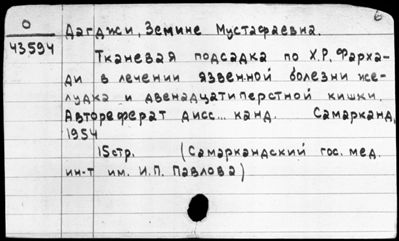 6
О
43594
Дагджи, Земине Мустафаевна.
Тканевая подсадка по Х.Р. Фарха-
ди в лечении язвенной болезни же-
лудка и двенадцатиперстной кишки.
Автореферат дисс... канд. Самарканд,
1954
15стр. (Самаркандский гос. мед.
ин-т им. И.П. Павлова)